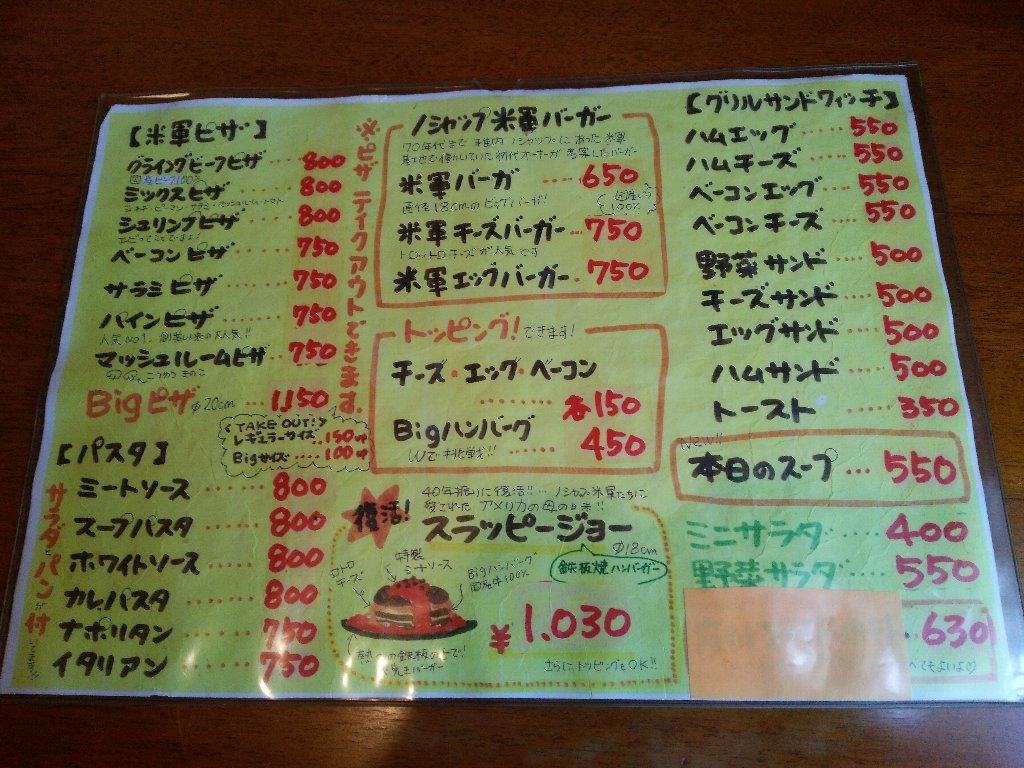 【米軍ピザ】
グライングビーフピザ 800
ミックスピザ 800
シュリンプピザ 800
ベーコンピザ 750
サラミピザ 750
パインピザ 750
人気No1.
マッシュルームピザ 750
Bigピザ φ20cm 1,150
※ピザテイクアウトできます。
(TAKE OUT!)
レギュラーサイズ 150
Bigサイズ 100
【パスタ】
サラダとパンが付
ミートソース 800
スープパスタ 800
ホワイトソース 800
カレーパスタ 800
ナポリタン 750
イタリアン 750
ノシャップ米軍バーガー
70年代まで稚内ノシャップにあった米軍
基地で働いていた初代オーナーが考案したバーガー
米軍バーガ 650
直径18cmのビッグバーガ!!
100%
米軍チーズバーガー 750
トロットロチーズが人気です
米軍エッグバーガー 750
トッピング!できます!
チーズ・エッグ・ベーコン
各150
Bigハンバーグ 450
Wで挑戦!!
復活!
40年振りに復活!!…ノシャップ米軍たちに
愛された アメリカの母の味!!
スラッピージョー
φ18cm
鉄板焼ハンバーガー
特製
ミートソース
トロトロ
チーズ
Bigハンバーグ
国産牛100%
¥1,030
さらにトッピングもOK!!
【グリルサンドウィッチ】
ハムエッグ 550
ハムチーズ 550
ベーコンエッグ 550
ベーコンチーズ 550
野菜サンド 500
チーズサンド 500
エッグサンド 500
ハムサンド 500
トースト 350
New!!
本日のスープ 550
ミニサラダ 400
野菜サラダ 550
630
べてもよいよ♡